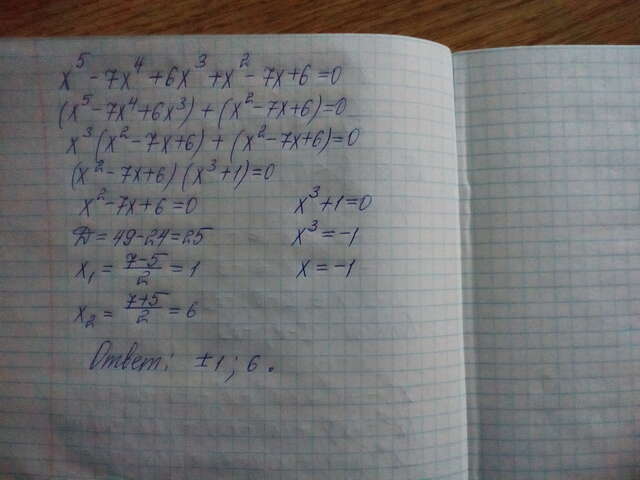 x⁵ - 7x⁴ + 6x³ + x² - 7x + 6 = 0
(x⁵ - 7x⁴ + 6x³) + (x² - 7x + 6) = 0
x³(x² - 7x + 6) + (x² - 7x + 6) = 0
(x² - 7x + 6)(x³ + 1) = 0
x² - 7x + 6 = 0 x³ + 1 = 0
Д = 49 - 24 = 25 x³ = -1
x₁ = (7-5)/2 = 1 x = -1
x₂ = (7+5)/2 = 6
Ответ: ±1; 6.